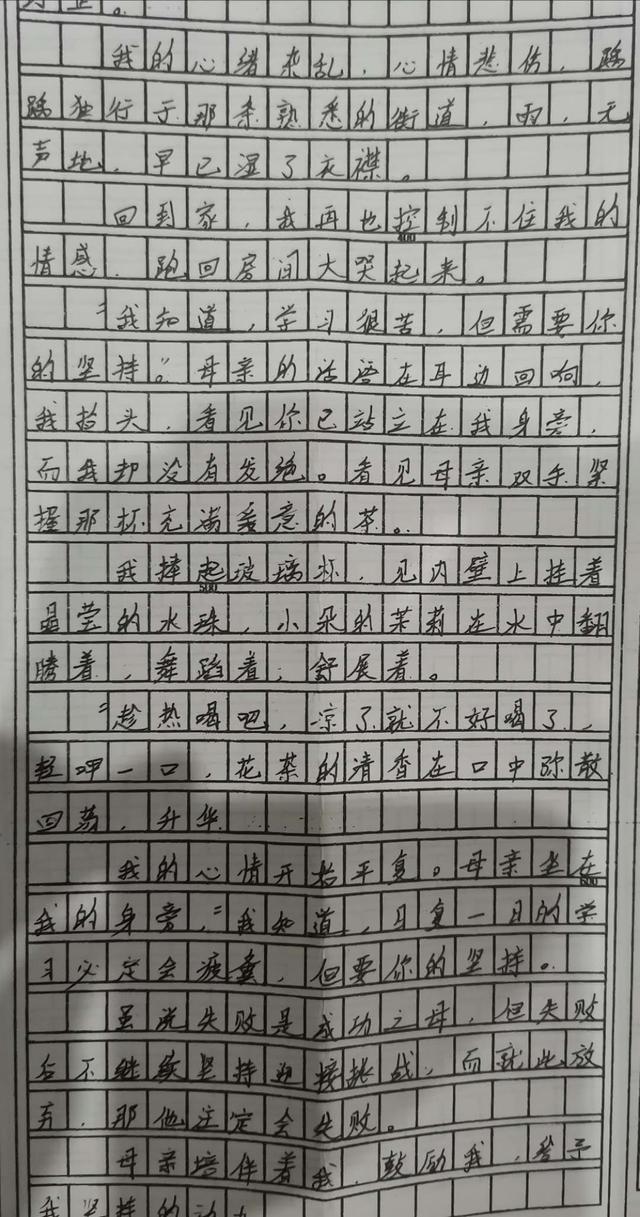 我的心绪杂乱，心情悲伤，踽
踽独行于那条熟悉的街道，雨，无
声地，早已湿了衣襟。
回到家，我再也控制不住我的
400
情感，跑回房间大哭起来。
“我知道，学习很苦，但需要你
的坚持。”母亲的话语在耳边回响，
我抬头，看见你已站立在我身旁，
而我却没有发绝。看见母亲双手紧
握那杯充满爱意的茶。
我捧起玻璃杯，见内壁上挂着
500
晶莹的水珠，小朵的茉莉在水中翻
腾着，舞蹈着，舒展着。
“趁热喝吧，凉了就不好喝了，
轻呷一口，花茶的清香在口中弥散
回荡，升华
我的心情开始平复。母亲坐在
600
我的身旁，“我知道，日复一日的学
习必定会疲惫，但要你的坚持。
虽说失败是成功之母，但失败
后不继续坚持迎接挑战，而就此放
弃，那他注定会失败。
母亲培伴着我，鼓励我，给予
我坚持的动力